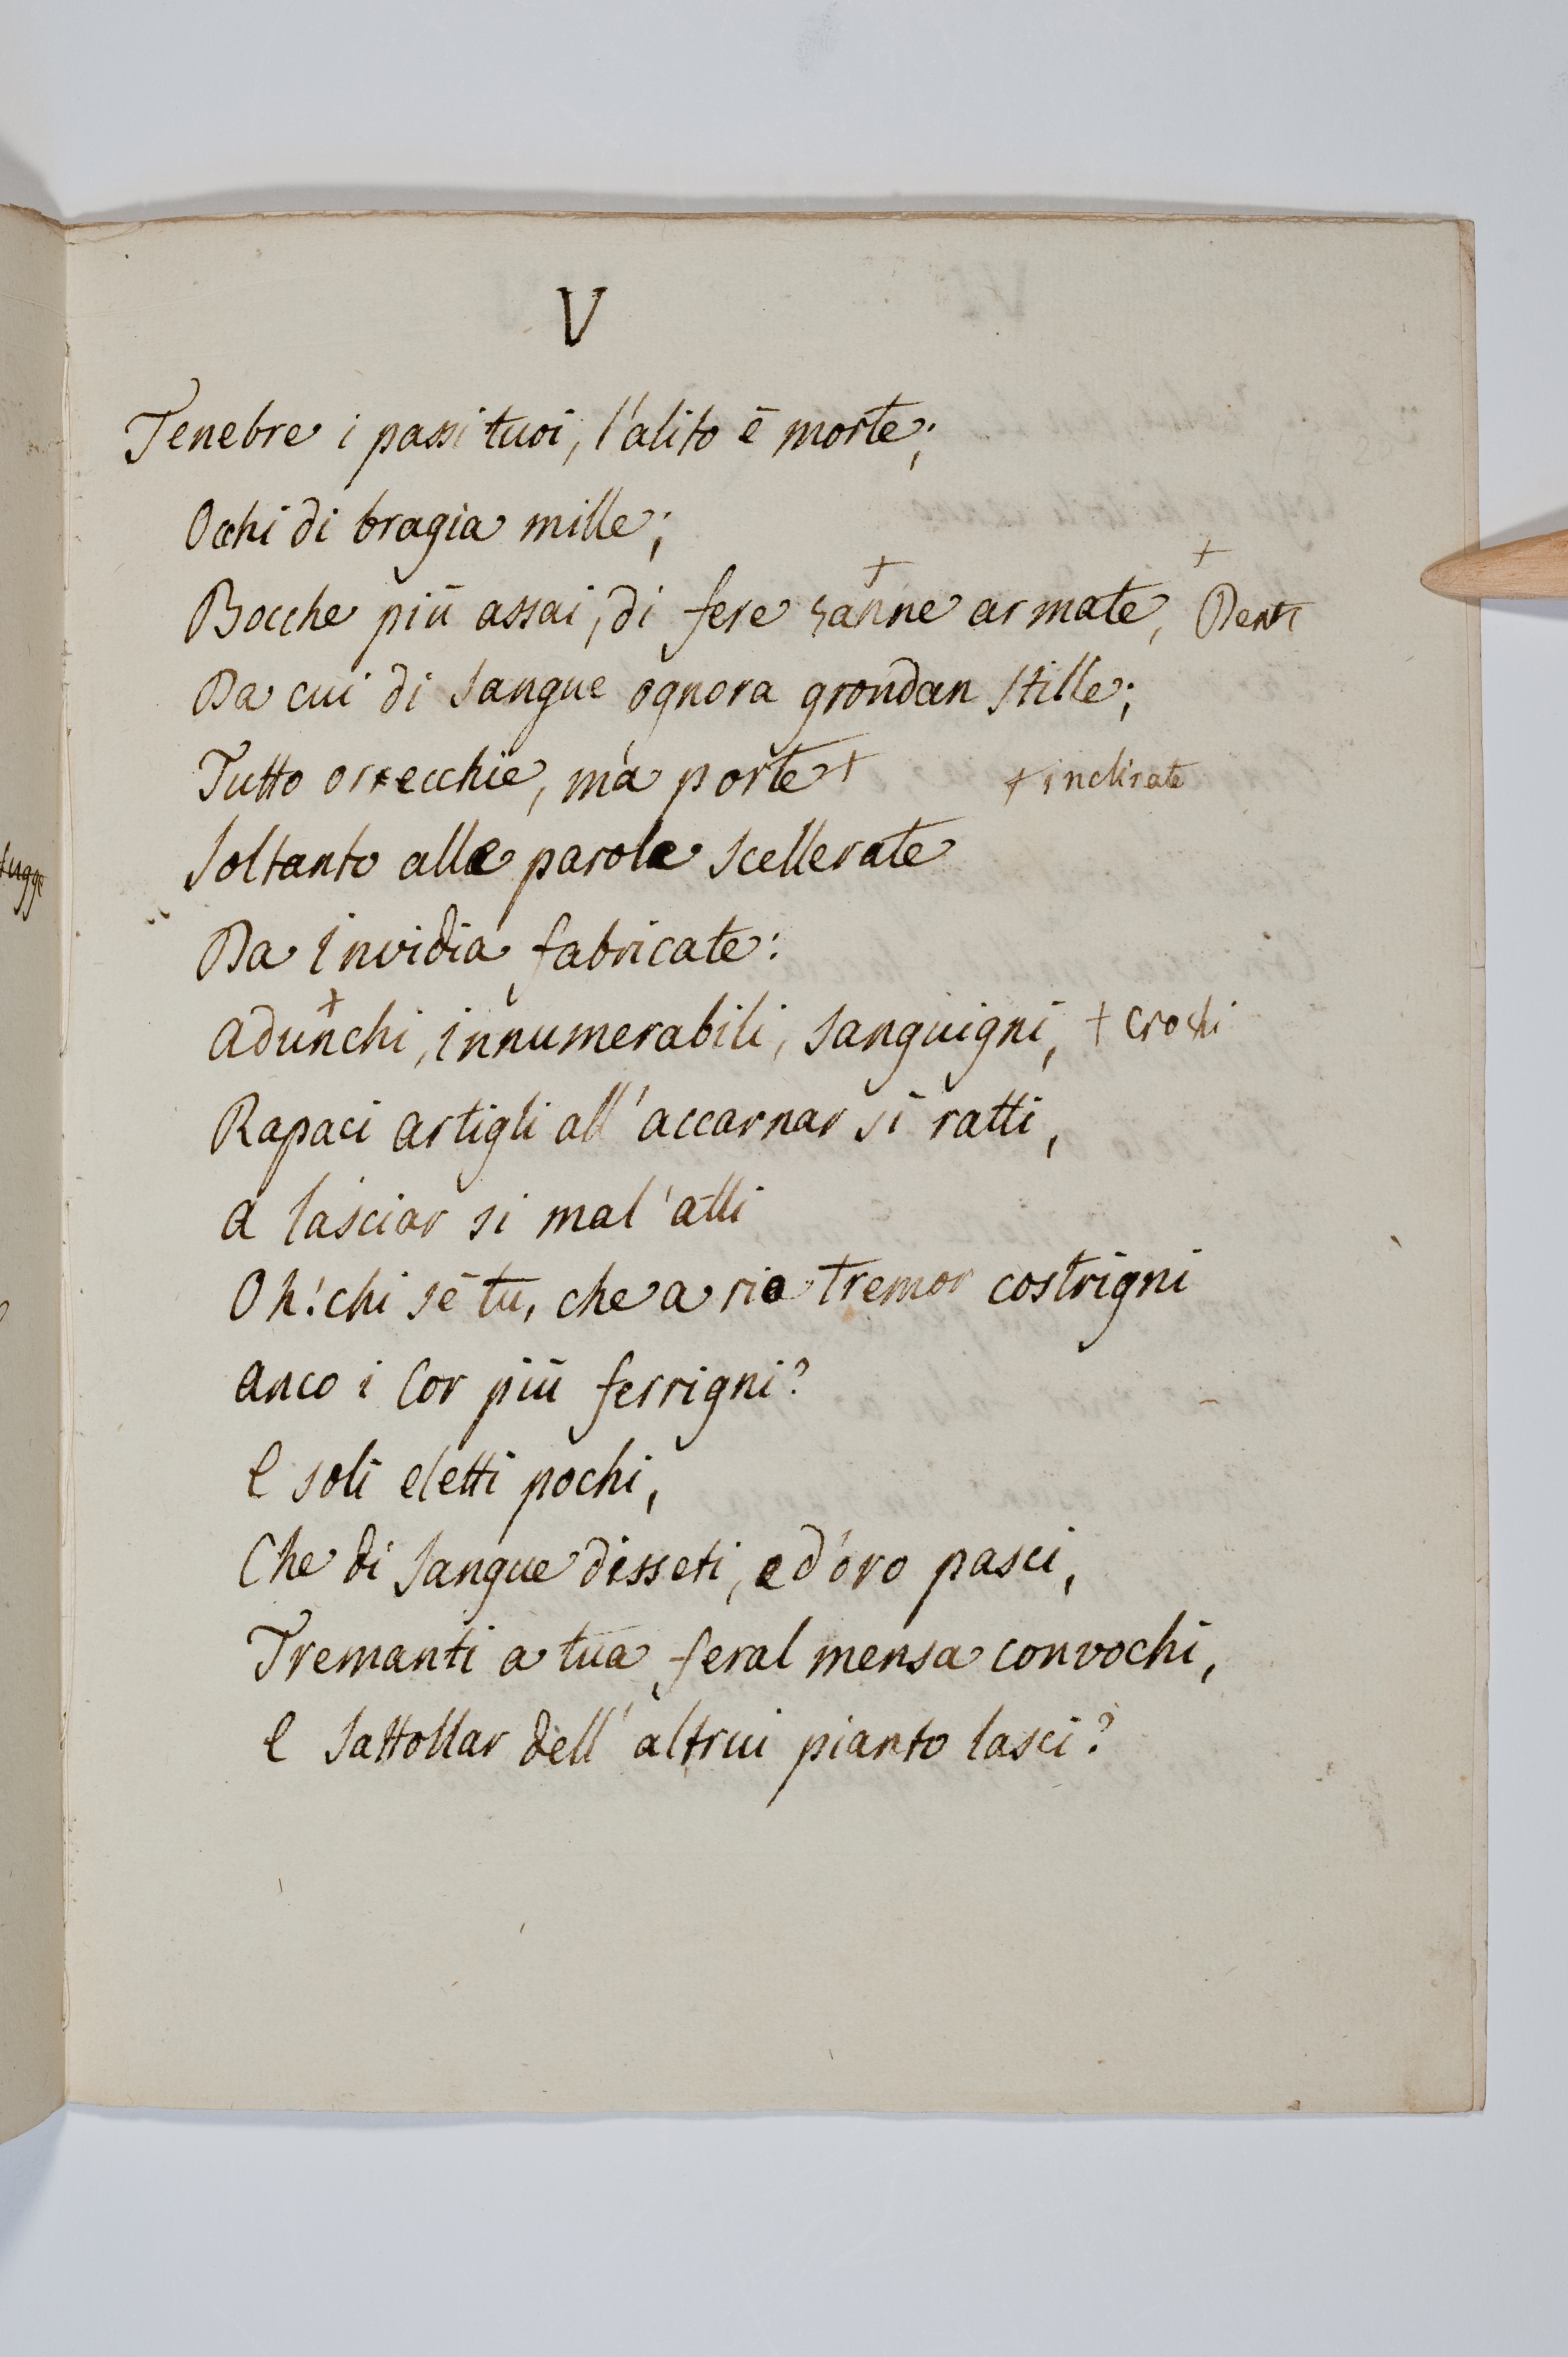 V
Tenebre i passi tuoi, l'alito è morte;
Occhi di bragia mille;
Bocche più assai, di fere zanne armate, + Denti
Da cui di sangue ognora grondan stille;
Tutto orecchie, mà porte + + inclinate
Soltanto alle parole scellerate
Da Invidia fabricate:
Adunchi, innumerabili, sanguigni, + crochi
Rapaci artigli all' accarnar sì ratti,
A lasciar sì mal' atti
Oh! chi sè tu, che a rio tremor costrigni
Anco i Cor più ferrigni?
E soli eletti pochi,
Che di sangue disseti, e d'oro pasci,
Tremanti a tua feral mensa convochi,
E sattollar dell' altrui pianto lasci?